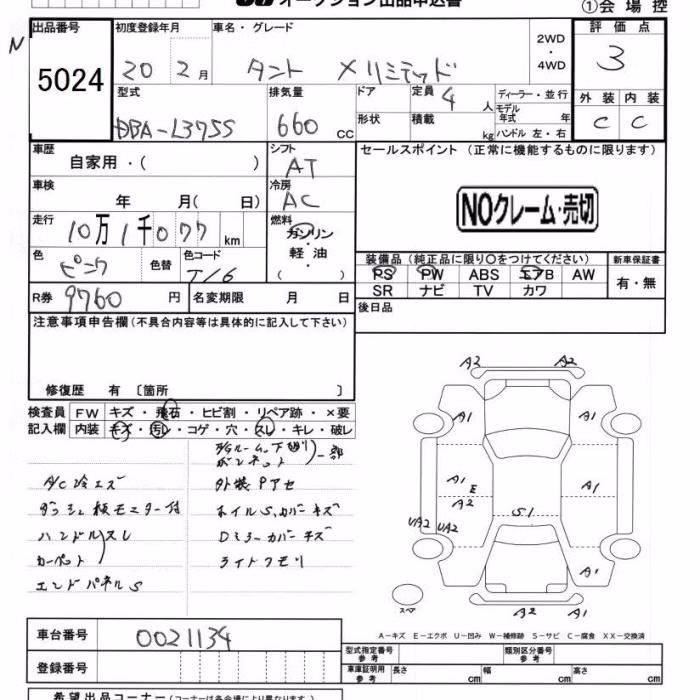 オークション出品申込書
①会場控
N
出品番号
5024
初度登録年月
20 2月
車名・グレード
タント Xリミテッド
2WD
・
4WD
評価点
3
型式
DBA-L375S
排気量
660 CC
ドア
形状
定員 4 人
積載 kg
ディーラー・並行
モデル年式 年
ハンドル 左・右
外装 内装
C C
車歴
自家用・( )
シフト
AT
セールスポイント (正常に機能するものに限ります)
車検
年 月( 日)
冷房
AC
NOクレーム・売切
走行
10万1千077km
燃料
ガソリン・
軽油・
( )
色
ピンク
色替
色コード
T16
装備品 (純正品に限り○をつけてください)
PS PW ABS エアB AW
SR ナビ TV カワ
新車保証書
有・無
R券 9760円
名変期限 月 日
後日品
注意事項申告欄(不具合内容等は具体的に記入して下さい)
修復歴 有 〔箇所 〕
検査員
記入欄
FW キズ・飛石・ヒビ割・リペア跡・×要
内装 キズ・汚レ・コゲ・穴・スレ・キレ・破レ
ボンネット
一部
A/C冷エズ
外装Pアセ
ダッシュ板モニター付
ホイルS、カバーキズ
ハンドルスレ
Dミラーカバーキズ
カーペット
ライトクモリ
エンドパネルS
A2 A2
A1 A1
A1 E
A2
A1
S1
UA2 UA2
A1
スペア
A2 A1
A-キズ E-エクボ U-凹み W-補修跡 S-サビ C-腐食 XX-交換済
車台番号
0021134
登録番号
型式指定番号
参考
類別区分番号
参考
車庫証明用
参考
長さ cm 幅 cm 高さ cm
希望出品コーナー(コーナーは各会場により異なります)